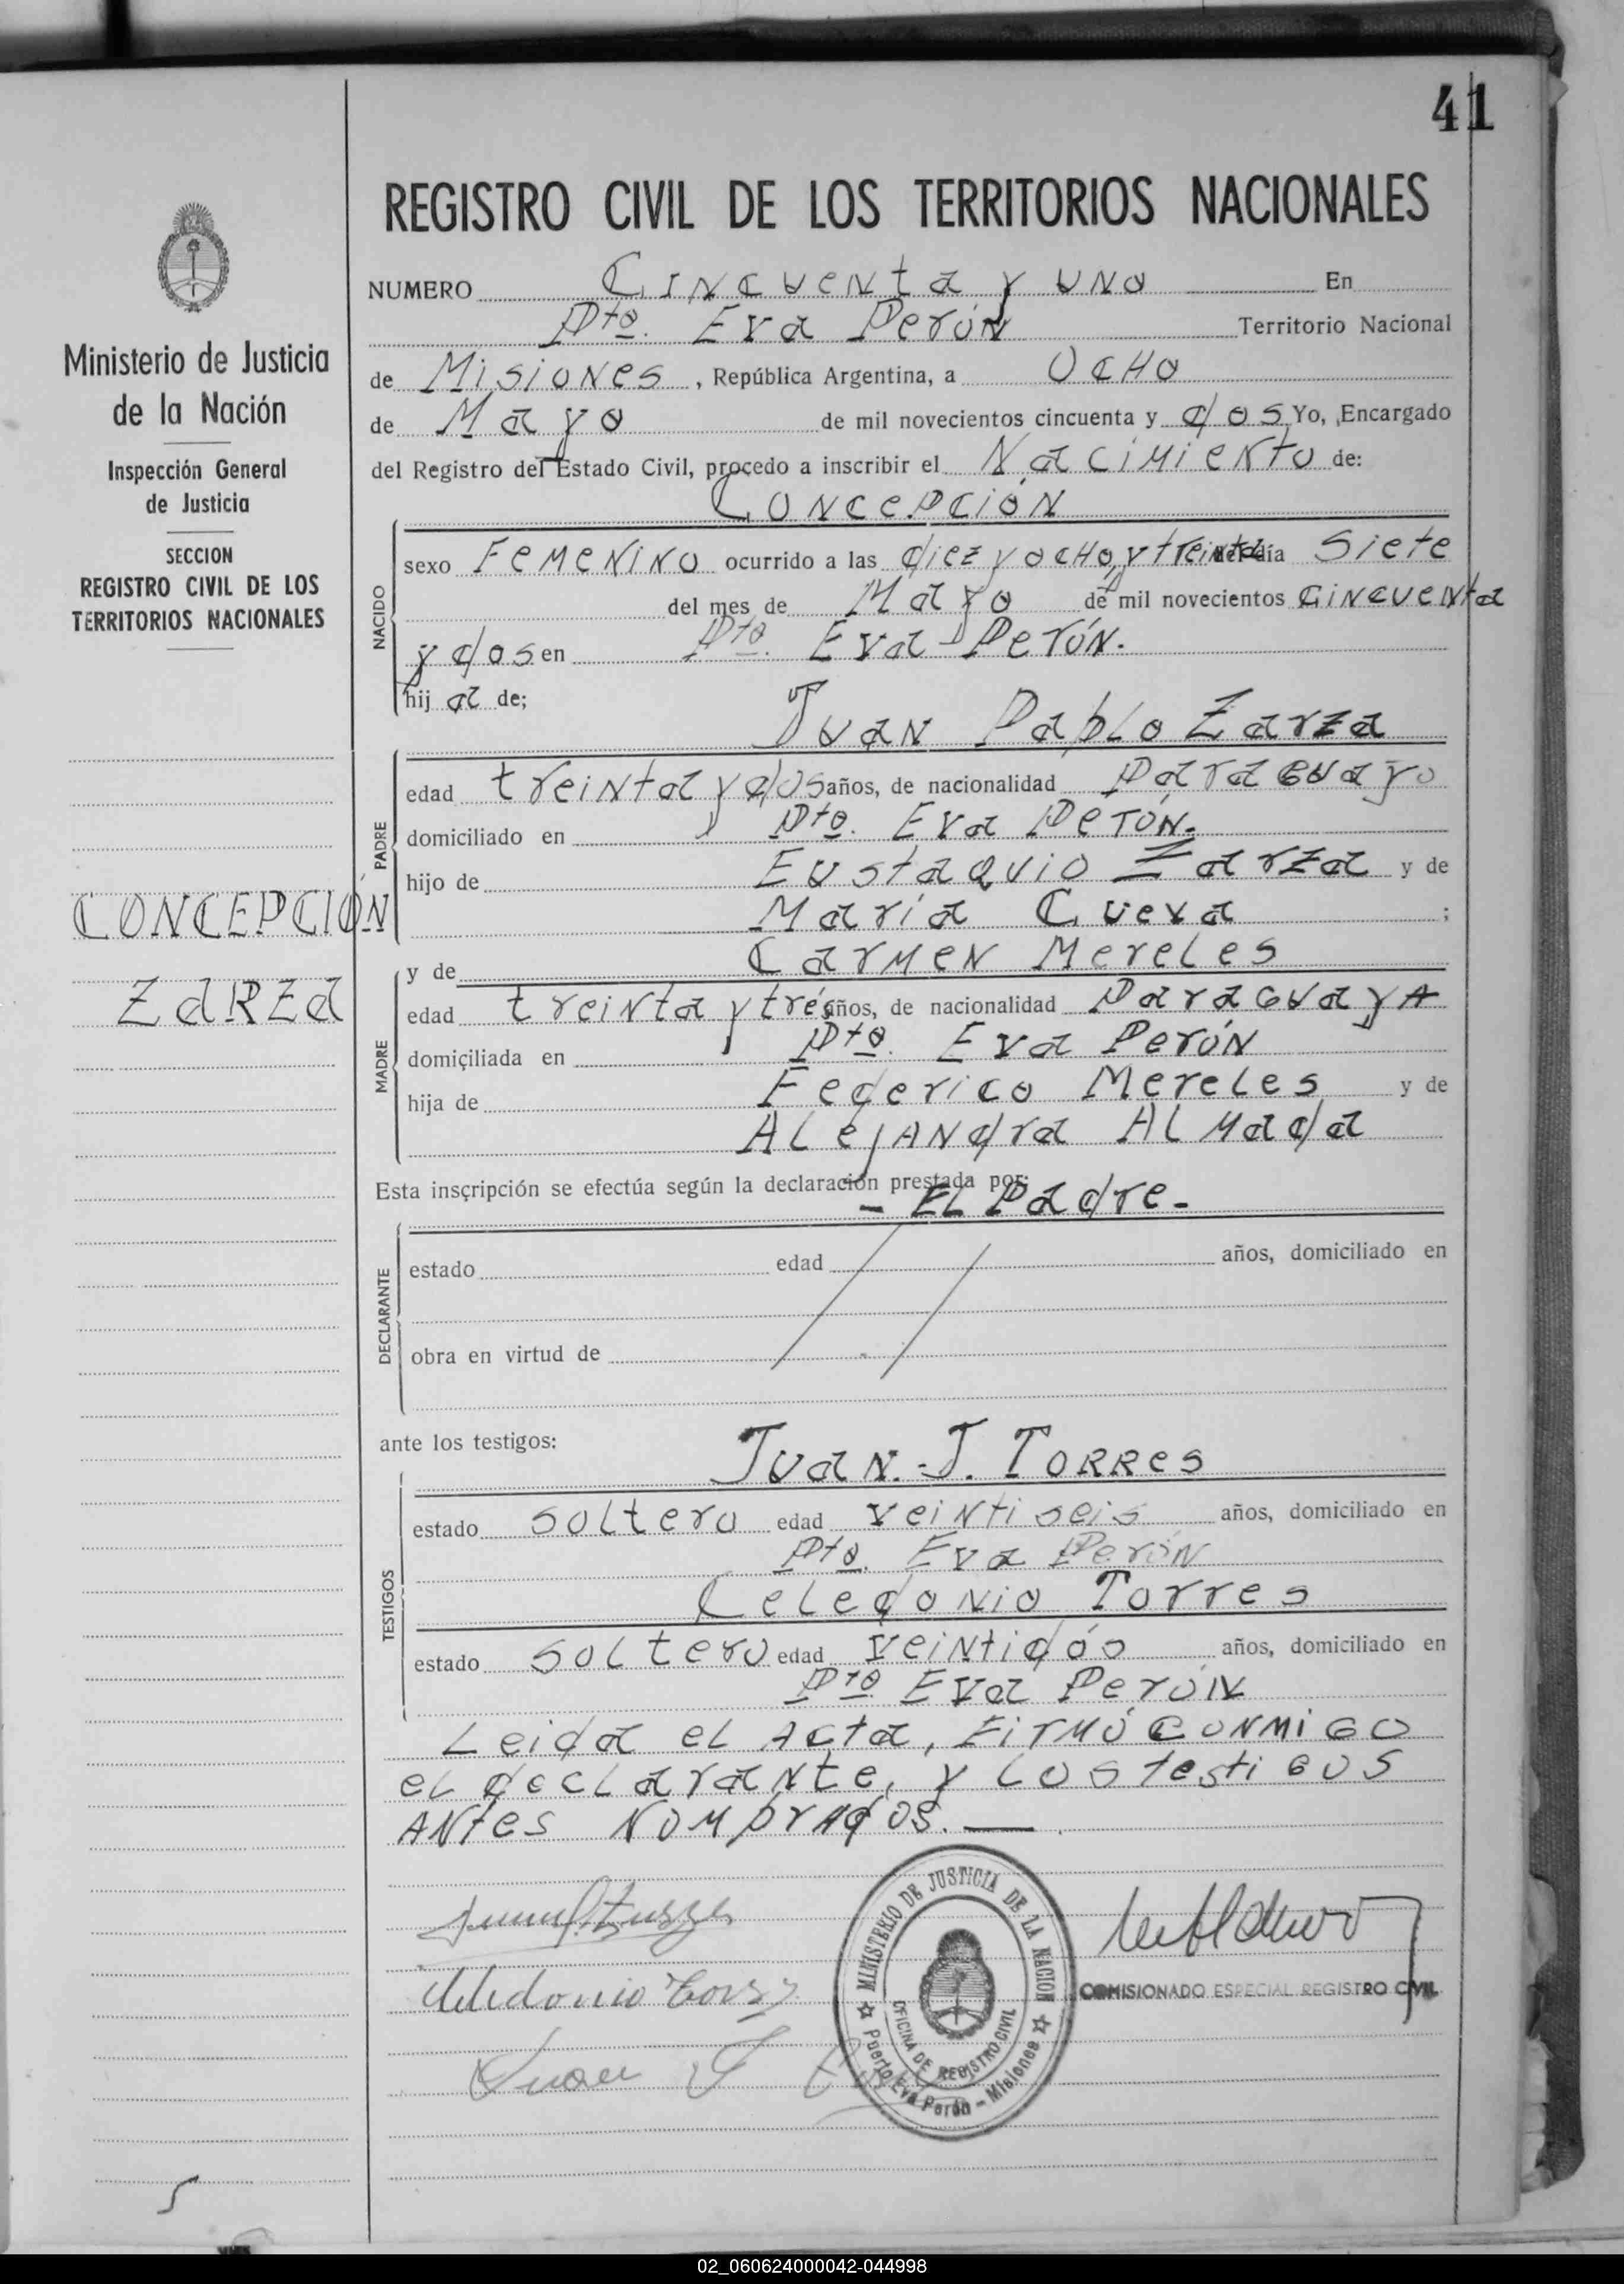 41
REGISTRO CIVIL DE LOS TERRITORIOS NACIONALES
Ministerio de Justicia
de la Nación
Inspección General
de Justicia
SECCION
REGISTRO CIVIL DE LOS
TERRITORIOS NACIONALES
CONCEPCIÓN
ZARZA
NUMERO Cincuenta y uno En
Pto. Eva Perón Territorio Nacional
de Misiones, República Argentina, a Ocho
de Mayo de mil novecientos cincuenta y dos Yo, Encargado
del Registro del Estado Civil, procedo a inscribir el Nacimiento de:
Concepción
NACIDO
sexo Femenino ocurrido a las diez y ocho, y treinta del día Siete
del mes de Mayo de mil novecientos Cincuenta
y dos en Pto. Eva Perón.
hij a de;
Juan Pablo Zarza
PADRE
edad treinta y dos años, de nacionalidad Paraguayo
domiciliado en Pto. Eva Perón.
hijo de Eustaquio Zarza y de
María Cueva ;
MADRE
y de Carmen Mereles
edad treinta y tres años, de nacionalidad Paraguaya
domiciliada en Pto. Eva Perón
hija de Federico Mereles y de
Alejandra Almada
Esta inscripción se efectúa según la declaración prestada por:
- El Padre. -
DECLARANTE
estado edad años, domiciliado en
obra en virtud de
ante los testigos:
Juan. J. Torres
TESTIGOS
estado soltero edad veintiseis años, domiciliado en
Pto. Eva Perón
Celedonio Torres
estado soltero edad veintidós años, domiciliado en
Pto Eva Perón
Leida el acta, firmó conmigo
el declarante, y los testigos
antes nombrados. —
Celedonio Torres
Juan J
MINISTERIO DE JUSTICIA DE LA NACION
OFICINA DE REGISTRO CIVIL
Puerto Eva Perón - Misiones
COMISIONADO ESPECIAL REGISTRO CIVIL
02_060624000042-044998